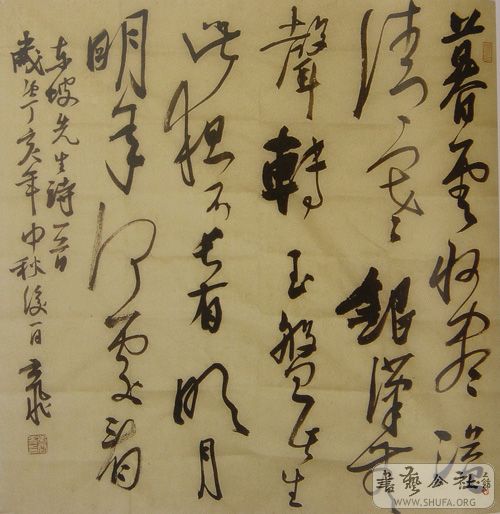 暮雲收盡溢
清寒銀漢無
聲轉玉盤此生
此夜不長好明月
明年何處看
東坡先生詩一首
歲在丁亥年中秋後一日
書藝公社
WWW.SHUFA.ORG